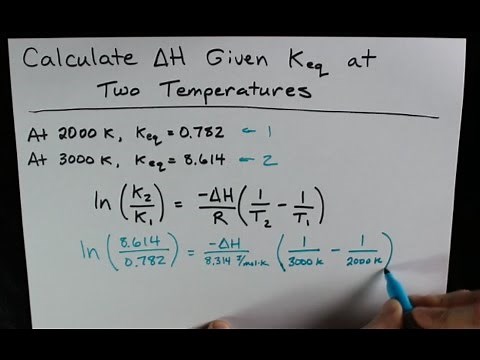 Calculate ΔH Given Keq at
Two Temperatures
At 2000 K, Keq = 0.782 ← 1
At 3000 K, Keq = 8.614 ← 2
ln (K₂/K₁) = -ΔH/R (1/T₂ - 1/T₁)
ln (8.614/0.782) = -ΔH/8.314 J/mol·K (1/3000 K - 1/2000 K)